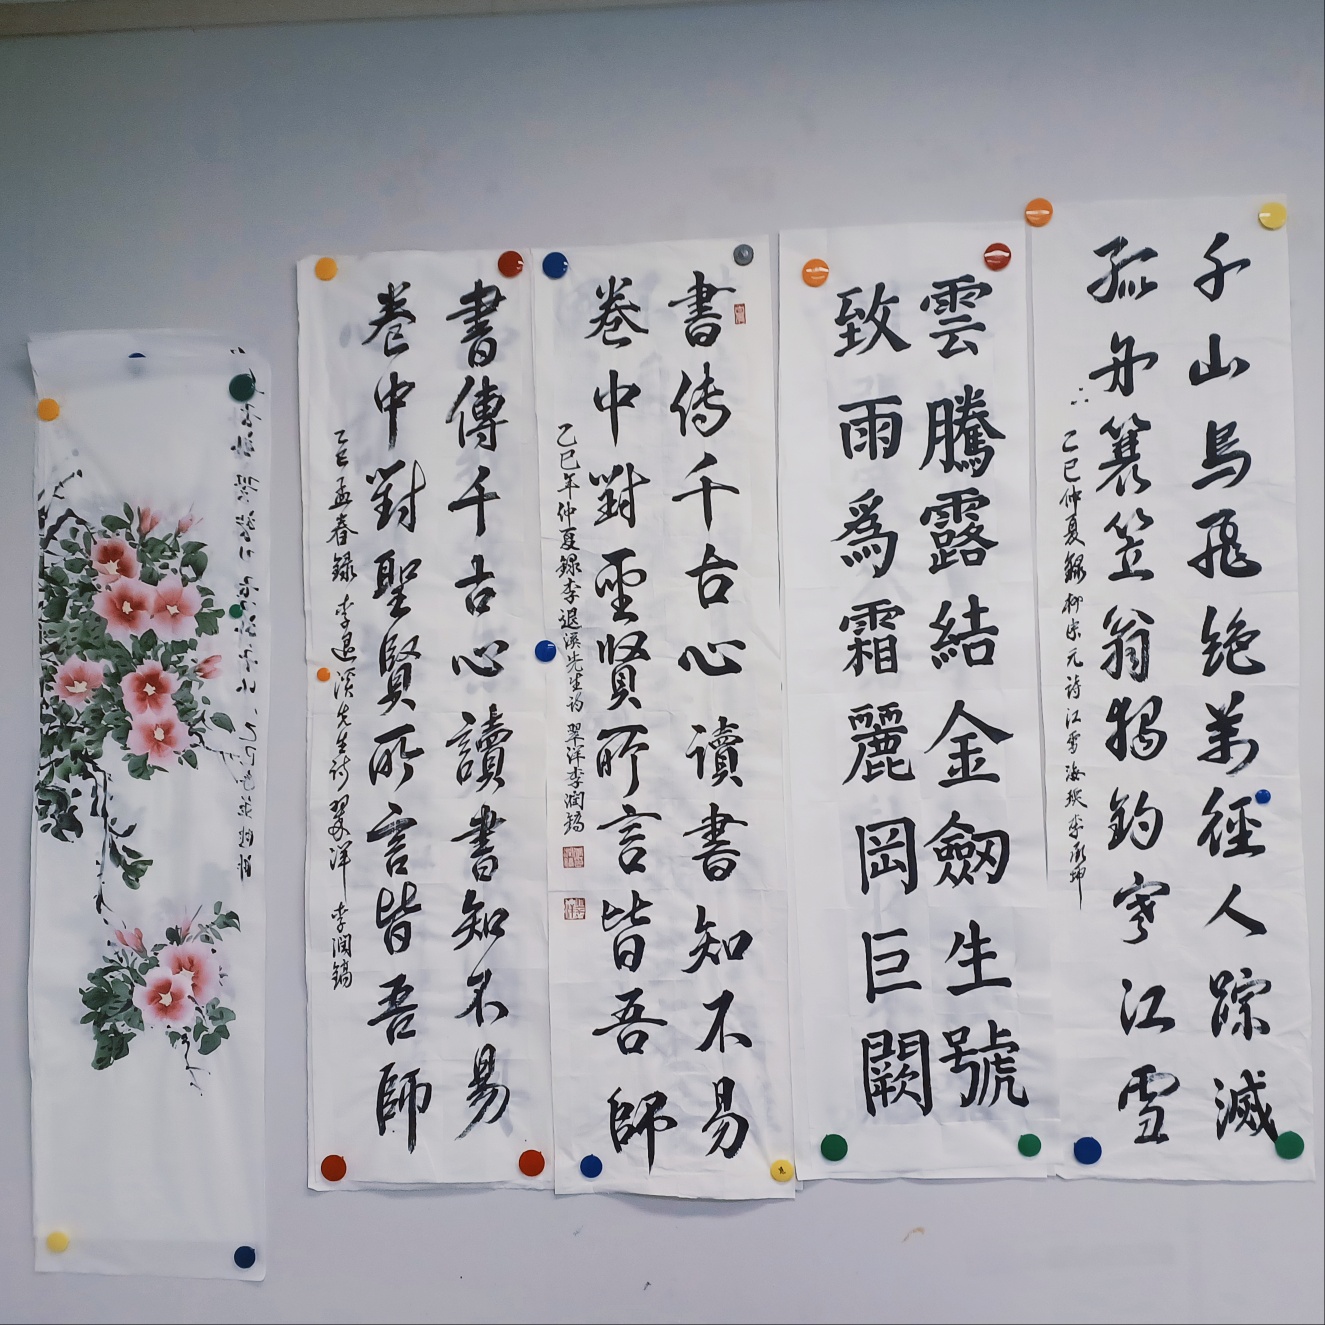 千山鳥飛绝萬徑人踪滅
孤舟蓑笠翁獨釣寒江雪
乙巳仲夏錄柳宗元诗江雪海 李承坤
雲騰露結金劒生號
致雨爲霜麗岡巨闕
書传千古心讀書知不易
卷中對聖賢所言皆吾師
乙巳年仲夏録李退溪先生诗 翠洋李润鎬
書傳千古心讀書知不易
卷中對聖賢所言皆吾師
乙巳孟春録 李退溪先生詩 翠洋 李润鎬